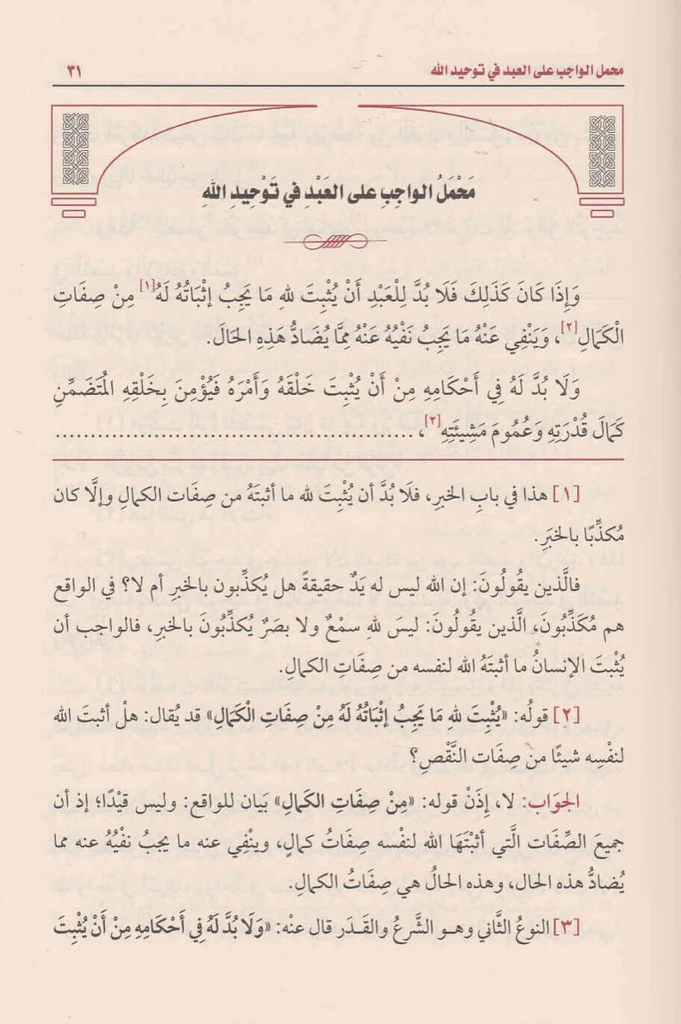 محمل الواجب على العبد في توحيد الله ٣١
مَحْمَلُ الواجِبِ على العَبْد في تَوْحِيدِ اللهِ
وَإِذَا كَانَ كَذَلِكَ فَلَا بُدَّ لِلْعَبْدِ أَنْ يُثْبِتَ للهِ مَا يَجِبُ إِثْبَاتُهُ لَهُ[١] مِنْ صِفَاتِ
الْكَمَالِ[٢]، وَيَنْفِي عَنْهُ مَا يَجِبُ نَفْيُهُ عَنْهُ مِمَّا يُضَادُّ هَذِهِ الحَالَ.
وَلَا بُدَّ لَهُ فِي أَحْكَامِهِ مِنْ أَنْ يُثْبِتَ خَلْقَهُ وَأَمْرَهُ فَيُؤْمِنَ بِخَلْقِهِ المُتَضَمِّنِ
كَمَالَ قُدْرَتِهِ وَعُمُومَ مَشِيئَتِهِ[٣]، ................................................
[١] هذا في بابِ الخبرِ، فلَا بُدَّ أن يُثْبِتَ لله ما أثبتَهُ من صِفَات الكمالِ وإلَّا كان
مُكذِّبًا بالخبَرِ.
فالَّذين يقُولُونَ: إن الله ليس له يَدٌ حقيقةً هل يُكذِّبون بالخبرِ أم لا؟ في الواقع
هم مُكَذِّبُونَ، الَّذين يقُولُونَ: ليسَ للهِ سمْعٌ ولا بصَرٌ يُكذِّبُونَ بالخبرِ، فالواجب أن
يُثْبتَ الإنسانُ ما أثبتَهُ الله لنفسه من صِفَاتِ الكمالِ.
[٢] قولُه: «يُثْبِتَ للهِ مَا يَجِبُ إِثْبَاتُهُ لَهُ مِنْ صِفَاتِ الْكَمَالِ» قد يُقال: هلْ أثبتَ الله
لنفْسِه شيئًا من صِفَات النَّقْصِ؟
الجوَاب: لا، إذَنْ قوله: «مِنْ صِفَاتِ الكمَالِ» بَيَان للواقع: وليس قيْدًا؛ إذ أن
جميعَ الصِّفَات الَّتي أثبْتَهَا الله لنفْسه صِفَاتُ كمالٍ، وينْفِي عنه ما يجبُ نفْيُهُ عنه مما
يُضادُّ هذه الحال، وهذه الحالُ هي صِفَاتُ الكمالِ.
[٣] النوعُ الثَّاني وهـو الشَّرعُ والقَـدَر قال عنْه: «وَلَا بُدَّ لَهُ فِي أَحْكَامِهِ مِنْ أَنْ يُثْبِتَ